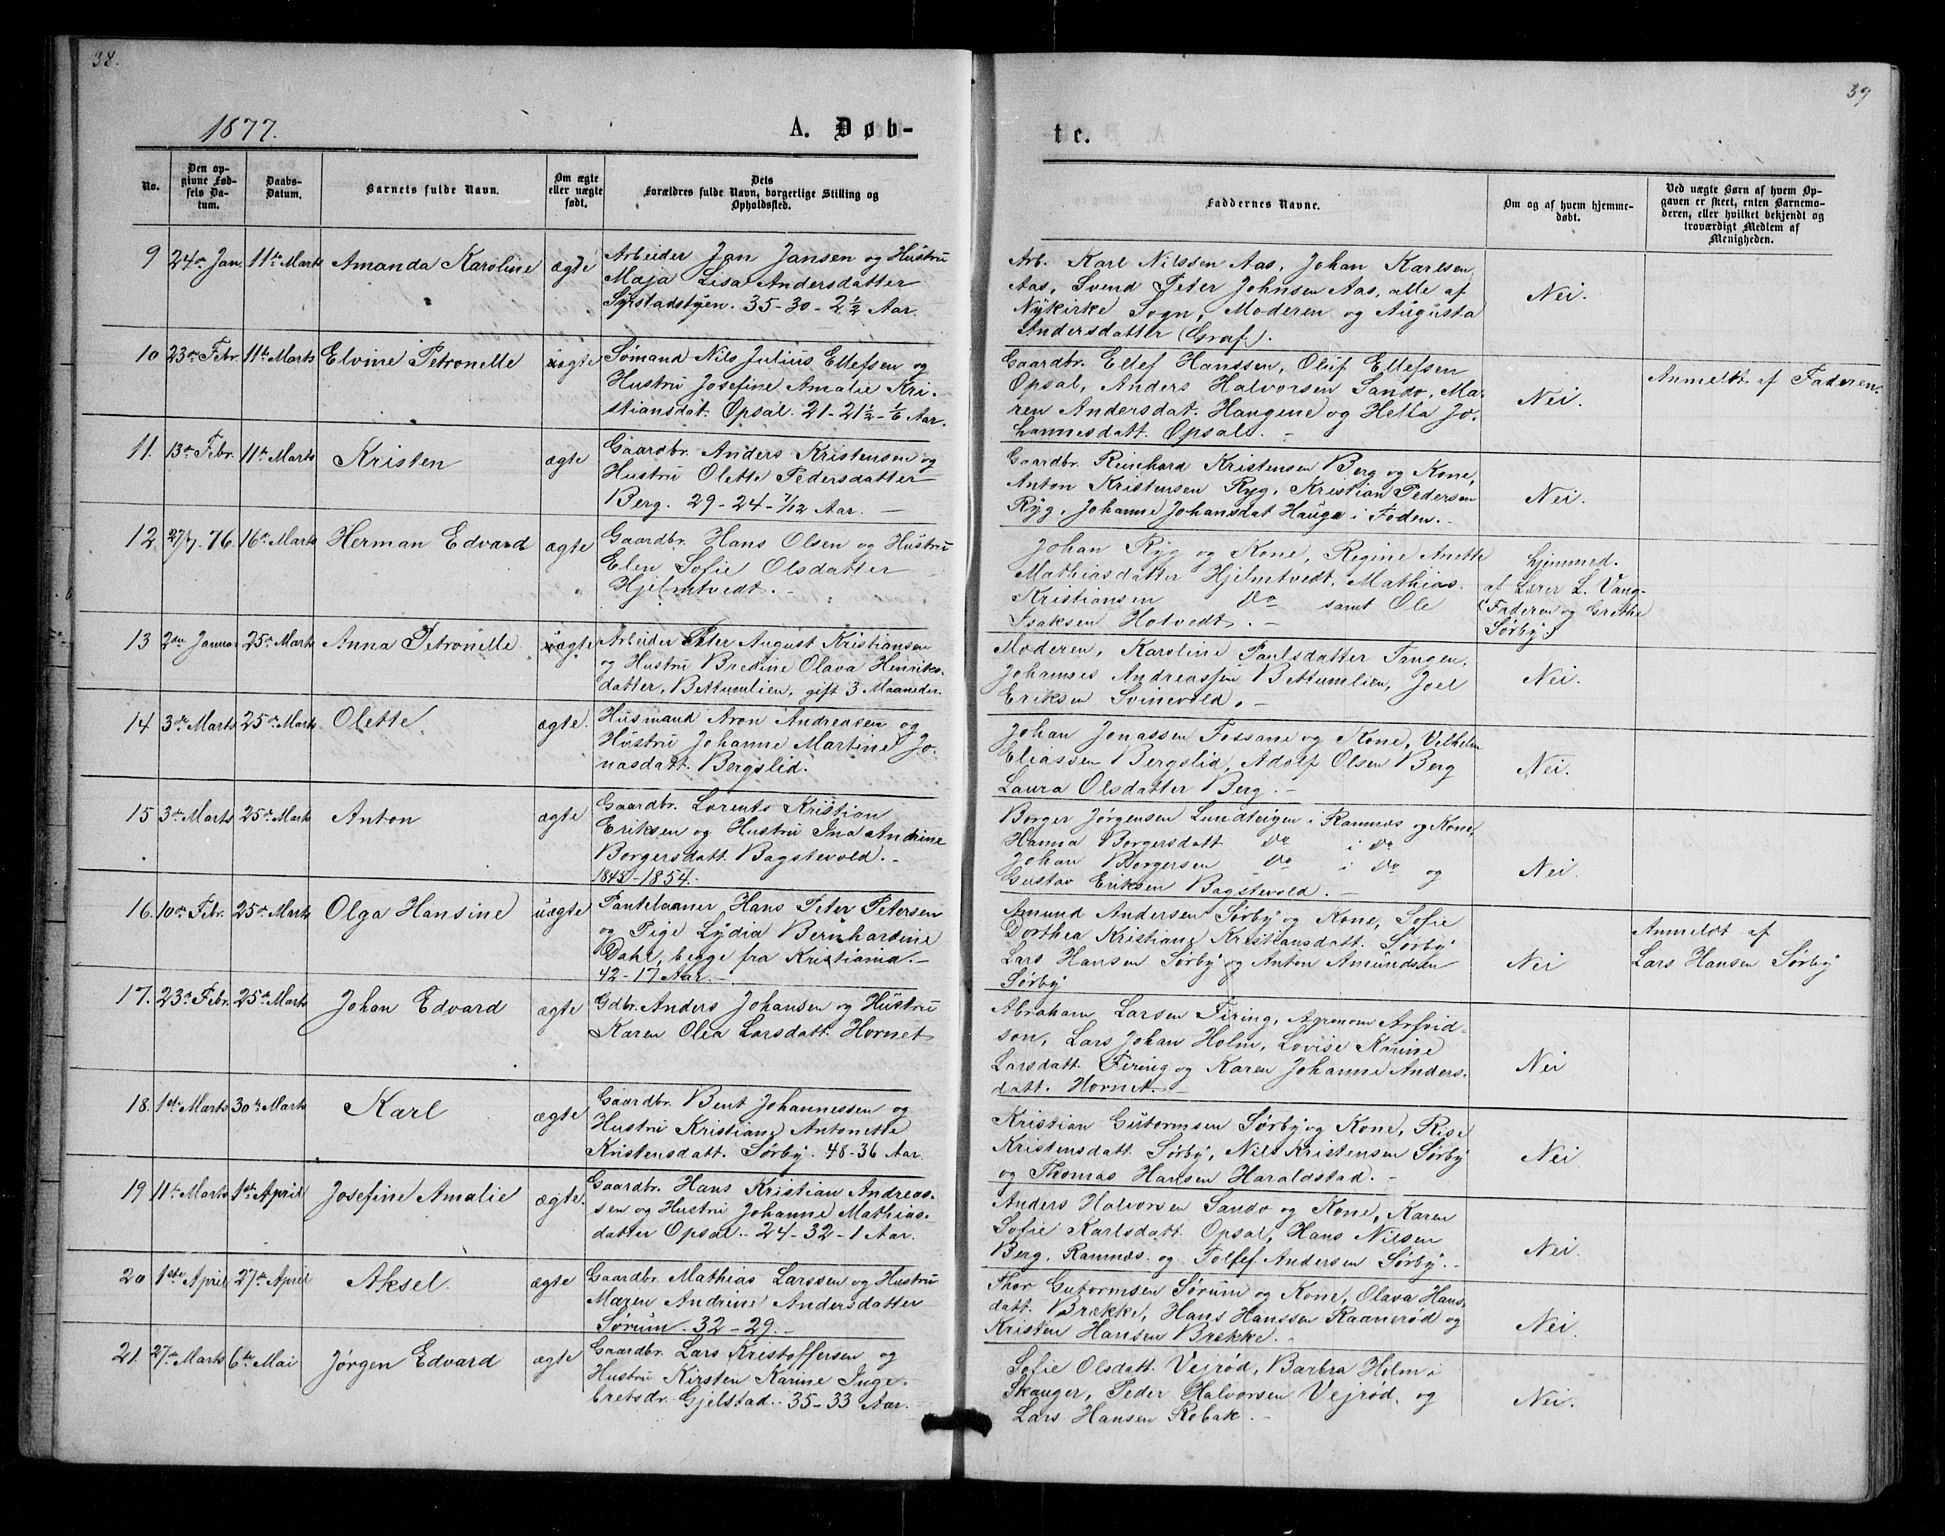 38.
39
1877.
A. Døb-
te.
No.
Den op-
givne Fød-
sels Da-
tum.
Daabs-
Datum.
Barnets fulde Navn.
Om ægte
eller uægte
født.
Dets
Forældres fulde Navn, borgerlige Stilling og
Opholdssted.
Faddernes Navne.
Om og af hvem hjemme-
døbt.
Ved uægte Børn af hvem Op-
gaven er skeet, enten Barnemo-
deren, eller hvilket bekjendt og
troværdigt Medlem af
Menigheden.
9 24de Jan. 11te Marts Amanda Karoline ægte
Arbeider Jan Jansen og Hustru
Maja Lisa Andersdatter
35-30-2½ Aar.
Arb. Karl Nilssen Aas, Johan Karlsen
Aas, Svend Peter Johnsen Aas, alle af
Nykirke Sogn, Moderen og Augusta
Andersdatter (Graf.)
Nei.
10 23de Febr. 11te Marts Elvine Petronelle uægte
Sømand Nils Julius Ellefsen og
Hustru Josefine Amalie Kri-
stiansdat. Opsal. 21-21½-⅙ Aar.
Gaardbr. Ellef Hanssen, Oluf Ellefsen
Opsal, Anders Halvorsen Sando, Ma-
ren Andersdat. Haugene og Hella Jo-
hannesdatt. Opsal. -
Nei.
Anmeldt af Faderen.
11. 13de Febr. 11te Marts Kristen ægte
Gaardbr. Anders Kristensen og
Hustru Olette Pedersdatter
Berg. 29-24-7/12 Aar. -
Gaardbr. Reinhard Kristensen Berg og Kone,
Anton Kristensen Ryg, Kristian Pedersen
Ryg, Johanne Johansdat Hauga i Foden. -
Nei.
12. 27/7. 76. 16de Marts Herman Edvard ægte
Gaardbr. Hans Olsen og Hustru
Elen Sofie Olsdatter
Hjelmtvedt. -
Johan Ryg og Kone, Regine Anette
Mathiasdatter Hjelmtvedt, Mathias
Kristiansen Do samt Ole
Isaksen Hotvedt. -
hjemmed.
af Lærer L. Vang-
(Faderen og Grethe
Sørby)
13 2den Januar 25de Marts Anna Petronelle uægte
Arbeider Peter August Kristiansen
og Hustru Bredine Olava Henriks-
datter, Bettumlien, gift 3 Maaneder.
Moderen, Karoline Paulsdatter Tangen,
Johannes Andreassen Bettumlien, Joel
Eriksen Svinevold. -
Nei.
14 3de Marts 25de Marts Olette ægte.
Husmand Aron Andreasen og
Hustru Johanne Martine Jo-
nasdatt. Bergslid.
Johan Jonassen Fossane og Kone, Velhelm
Eliassen Bergslid, Adolf Olsen Berg
Laura Olsdatter Berg. -
Nei.
15 3de Marts 25de Marts Anton ægte
Gaardbr. Lorents Kristian
Eriksen og Hustru Ina Andrine
Borgersdatt. Bagstevold. -
1848-1854.
Borger Jørgensen Lundteigen i Ramnæs og Kone,
Hanna Borgersdatt Do i Do
Johan Borgersen Do i Do og
Gustav Eriksen Bagstevold. -
Nei.
16. 10de Febr. 25de Marts Olga Hansine uægte
Pantelaaner Hans Peter Petersen
og Pige Lydia Bernhardine
Dahl, begge fra Kristiania. -
42-17 Aar. -
Amund Andersen Sørby og Kone, Sofie
Dorthea Kristiane Kristiansdatt. Sørby
Lars Hansen Sørby og Anton Amundsen
Sørby
Nei
Anmeldt af
Lars Hansen Sørby
17. 23de Febr. 25de Marts Johan Edvard ægte
Gdbr. Anders Johansen og Hustru
Karen Olea Larsdatt. Hornet
Abraham Larsen Firing, Agronom Arfvid-
son, Lars Johan Holm, Lovise Karine
Larsdatt. Firing og Karen Johanne Anders-
datt. Hornet. -
Nei
18. 1ste Marts 30te Marts Karl ægte
Gaardbr. Bent Johannessen og
Hustru Kristiane Antonette
Kristensdatt. Sørby. 48-36 Aar.
Kristian Gutormsen Sørby og Kone, Rise
Kristensdatt. Sørby, Nils Kristensen Sørby
og Thomas Hansen Haraldstad. -
Nei
19 11te Marts 1ste April Josefine Amalie ægte.
Gaardbr. Hans Kristian Andreas-
sen og Hustru Johanne Mathias-
datter Opsal - 24-32-1 Aar.
Anders Halvorsen Sando og Kone, Karen
Sofie Karlsdatt. Opsal, Hans Nilsen
Berg, Ramnæs. og Tollef Andersen Sørby. -
Nei.
20 1ste April 27de April Aksel. ægte
Gaardbr. Mathias Larssen og Hustru
Maren Andrine Andersdatter
Sørum. 32-29. -
Thor Gutormsen Sørum og Kone, Olava Hans-
datt. Brække, Hans Hanssen Raanerød og
Kristen Hansen Brekke. -
Nei.
21. 27de Marts 6te Mai Jørgen Edvard ægte
Gaardbr. Lars Kristoffersen og
Hustru Kirsten Karine Inge-
bretsdr. Gjelstad. 35-33 Aar. -
Sofie Olsdatt. Vejrød, Barbra Holm i
Skauger, Peder Halvorsen Vejrød. og
Lars Hansen Robak. -
Nei.